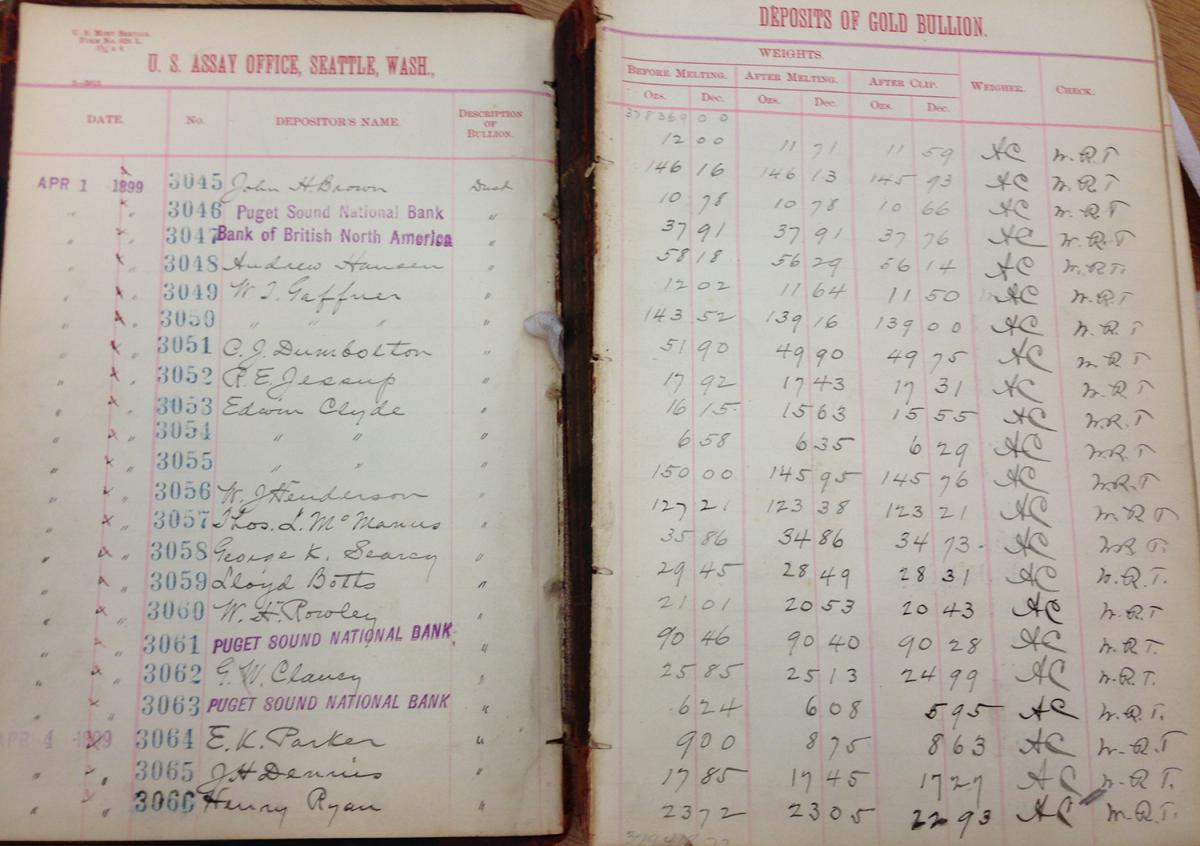 U. S. MINT SERVICE.
U. S. ASSAY OFFICE, SEATTLE, WASH.,
DATE. No. DEPOSITOR'S NAME. DESCRIPTION OF BULLION.
APR 1 1899 3045 John H. Brown Dust
" " 3046 Puget Sound National Bank "
" " 3047 Bank of British North America "
" " 3048 Andrew Hansen "
" " 3049 W. T. Gaffner "
" " 3050 " " " "
" " 3051 C. J. Dumbolton "
" " 3052 R. E. Jessup "
" " 3053 Edwin Clyde "
" " 3054 " " "
" " 3055 " " "
" " 3056 W. J. Henderson "
" " 3057 Thos. L. McManus "
" " 3058 George K. Searcy "
" " 3059 Lloyd Botts "
" " 3060 W. H. Rowley "
" " 3061 PUGET SOUND NATIONAL BANK "
" " 3062 G. W. Clancy "
" " 3063 PUGET SOUND NATIONAL BANK "
APR 4 1899 3064 E. K. Parker "
" " 3065 J. H. Dennis "
" " 3066 Henry Ryan "
DEPOSITS OF GOLD BULLION.
WEIGHTS.
BEFORE MELTING. AFTER MELTING. AFTER CLIP. WEIGHER. CHECK.
Ozs. Dec. Ozs. Dec. Ozs. Dec.
378369 00
12 00 11 71 11 59 AC W.R.T
146 16 146 13 145 93 AC W.R.T
10 78 10 78 10 66 AC W.R.T
37 91 37 91 37 76 AC W.R.T
58 18 56 29 56 14 AC W.R.T.
12 02 11 64 11 50 AC W.R.T
143 52 139 16 139 00 AC W.R.T
51 90 49 90 49 75 AC W.R.T
17 92 17 43 17 31 AC W.R.T
16 15 15 63 15 55 AC W.R.T
6 58 6 35 6 29 AC W.R.T
150 00 145 95 145 76 AC W.R.T
127 21 123 38 123 21 AC W.R.T
35 86 34 86 34 73 AC W.R.T.
29 45 28 49 28 31 AC W.R.T.
21 01 20 53 20 43 AC W.R.T
90 46 90 40 90 28 AC W.R.T.
25 85 25 13 24 99 AC W.R.T.
6 24 6 08 5 95 AC W.R.T.
9 00 8 75 8 63 AC W.R.T
17 85 17 45 17 27 AC W.R.T.
23 72 23 05 22 93 AC W.R.T.